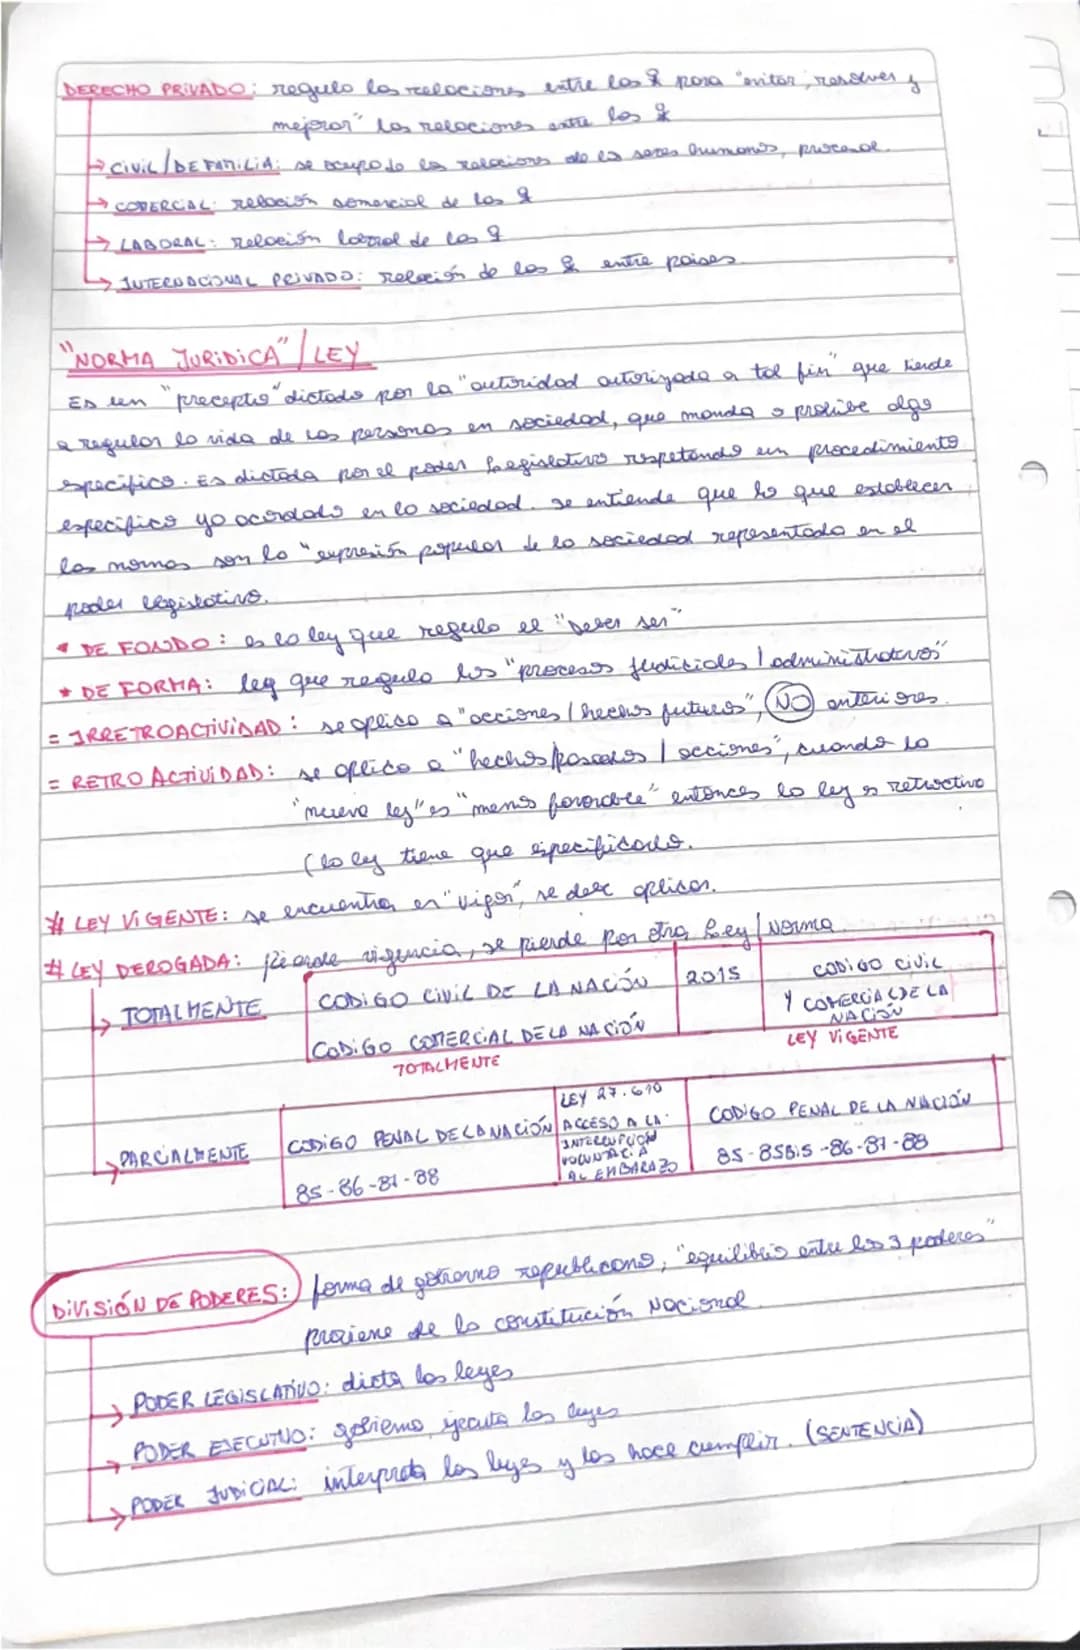 DERECHO PRIVADO: regula las relaciones entre las & para "evitar, resolver y
mejorar" las relaciones entre las &
→ CIVIL/DE FAMILIA: se ocupa de las relaciones de los seres humanos, procesal.
→ COMERCIAL: relación comercial de las &
→ LABORAL: relación laboral de las &
→ INTERNACIONAL PRIVADO: relación de las & entre países.
"NORMA JURIDICA" / LEY
Es un "precepto" dictado por la "autoridad autorizada a tal fin" que tiende
a regular la vida de las personas en sociedad, que manda o prohibe algo
especifico. Es dictada por el poder legislativo respetando un procedimiento
especifico ya acordado en la sociedad. se entiende que lo que establecen
las normas son la "expresión popular de la sociedad representada en el
poder legislativo.
* DE FONDO: es la ley que regula el "Deber ser"
* DE FORMA: ley que regula los "procesos judiciales / administrativos"
= IRRETROACTIVIDAD: se aplica a "acciones / hechos futuros", NO anteriores.
= RETROACTIVIDAD: se aplica a "hechos pasados / acciones", cuando la
"nueva ley" es "menos favorable" entonces la ley es retroctiva
(la ley tiene que especificarlo.
# LEY VIGENTE: se encuentra en "vigor", se debe aplicar.
# LEY DEROGADA: pierde vigencia, se pierde por otra Ley / Norma
→ TOTALMENTE
CODIGO CIVIL DE LA NACIÓN
CODIGO COMERCIAL DE LA NACIÓN
2015
CODIGO CIVIL
Y COMERCIAL DE LA
NACIÓN
TOTALMENTE
LEY VIGENTE
→ PARCIALMENTE
CODIGO PENAL DE LA NACIÓN
85-86-87-88
LEY 27.610
ACCESO A LA
INTERRUPCIÓN
VOLUNTARIA
AL EMBARAZO
CODIGO PENAL DE LA NACIÓN
85-85BIS-86-87-88
DIVISIÓN DE PODERES: forma de gobierno republicano, "equilibrio entre los 3 poderes"
proviene de la constitución Nacional
→ PODER LEGISLATIVO: dicta las leyes
→ PODER EJECUTIVO: gobierno, ejecuta las leyes
→ PODER JUDICIAL: interpreta las leyes y las hace cumplir. (SENTENCIA)